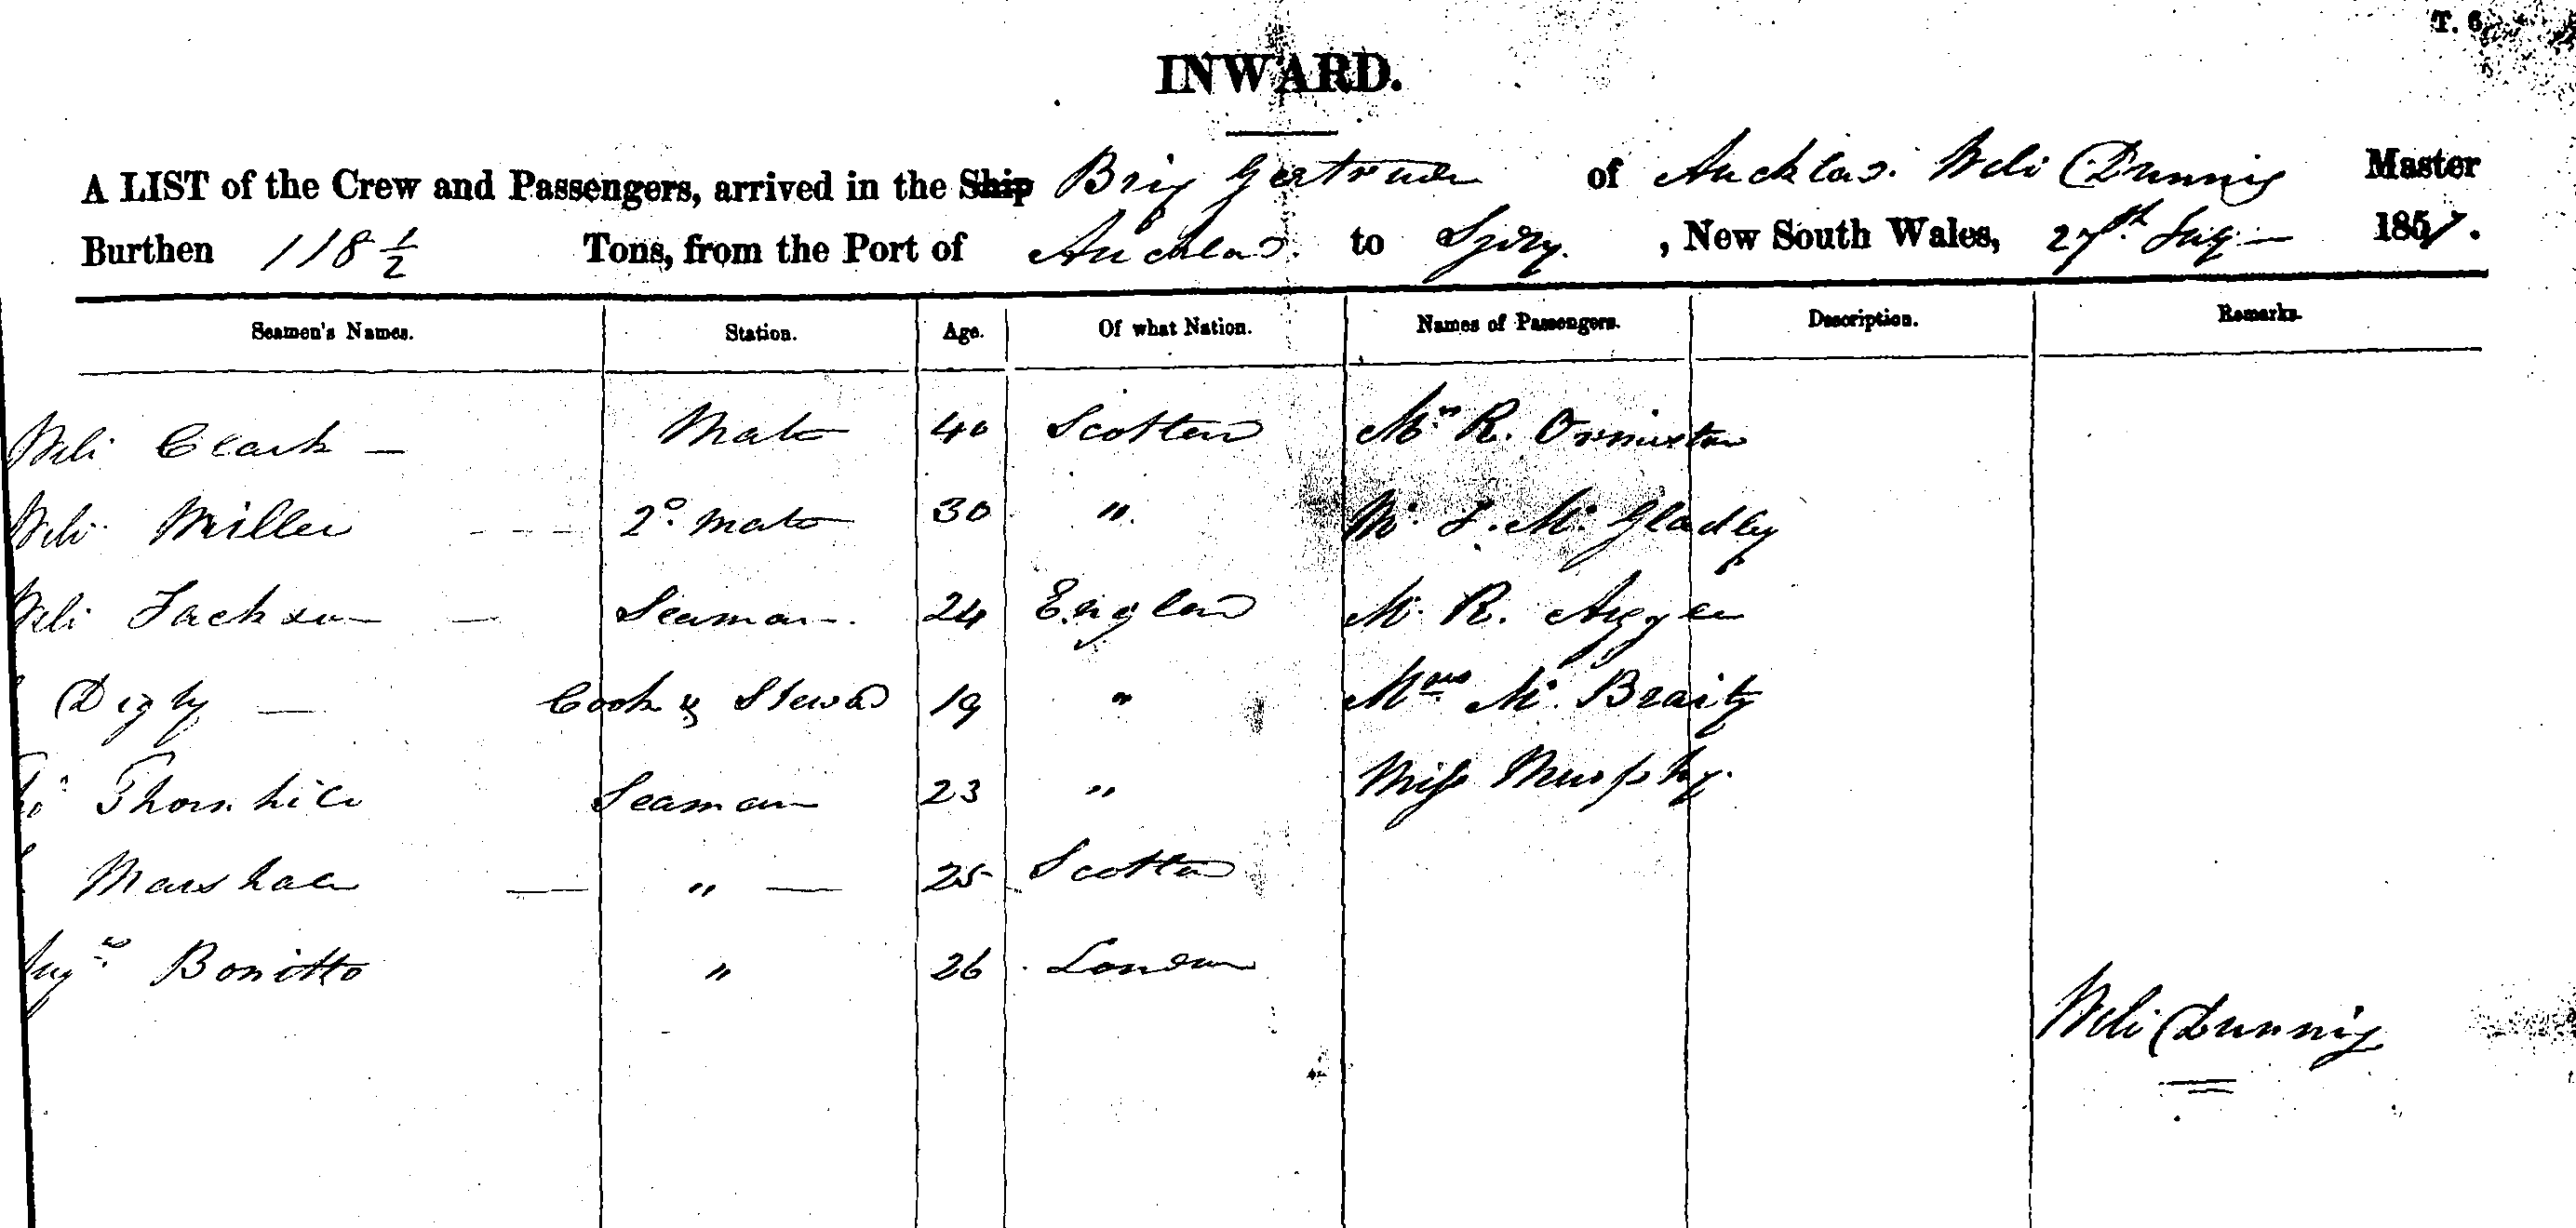 T. 6
INWARD.
A LIST of the Crew and Passengers, arrived in the Ship Brig Gertrude of Aucklad. Wm Dunning Master
Burthen 118 1/2 Tons, from the Port of Aucklad. to Sydny. , New South Wales, 27th 185
Seamen's Names. Station. Age. Of what Nation. Names of Passengers. Description. Remarks.
Wm Clark — Mate 40 Scotland Mr R. Ormiston
Wm Miller 2d. Mate 30 " Mr. Gladley
Wm Jackson — Seaman. 24 England Mr R.
Digby — Cook & Steward 19 " Mrs Mc
Thos Thornhill Seaman 23 " Miss Murphy.
Marshall — " — 25 Scotland
Augs Bonitto " 26 London
Wm Dunning